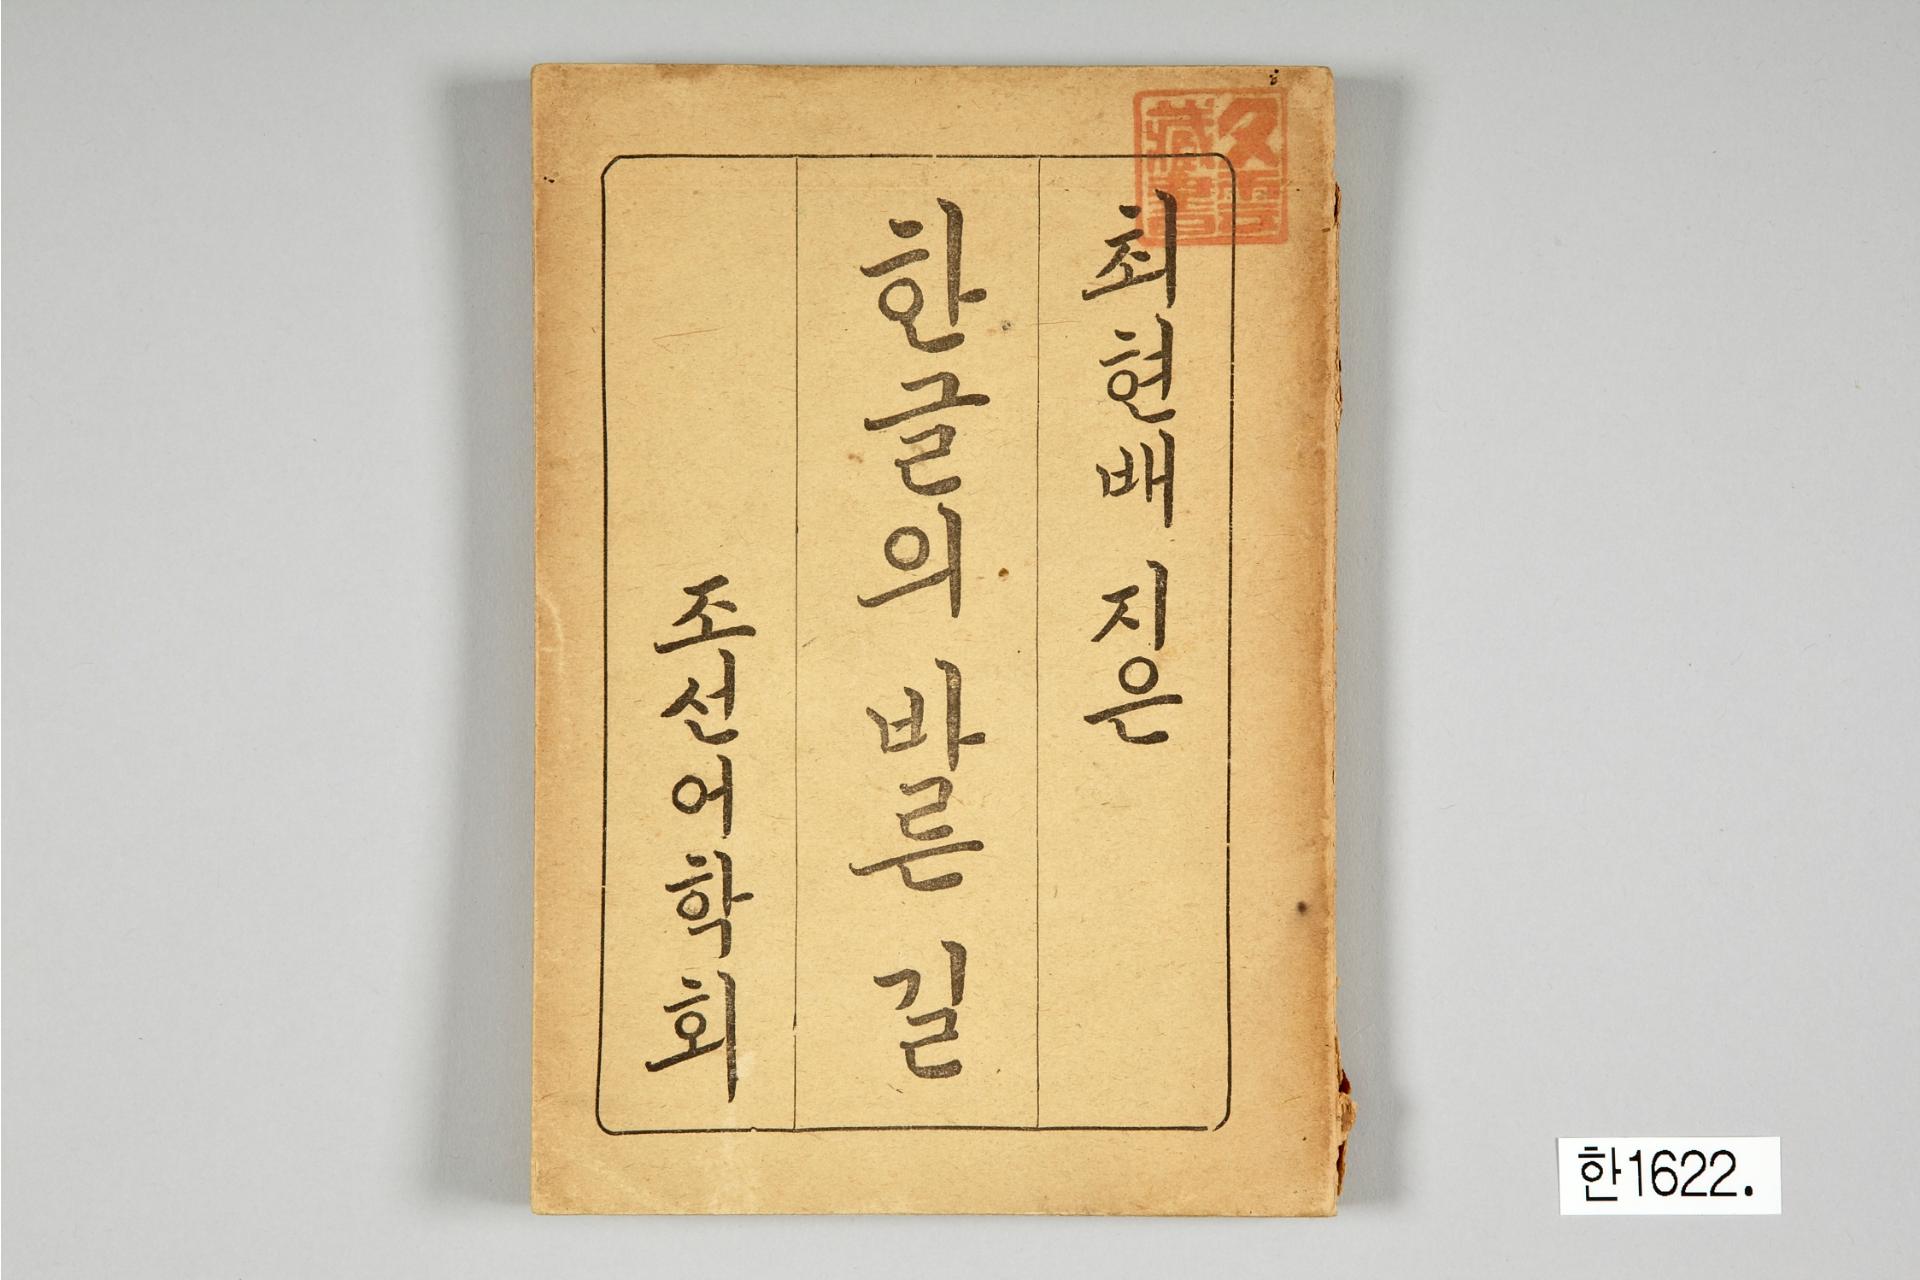 최현배 지은
한글의 바른 길
조선어학회
久雲
藏書
한1622.